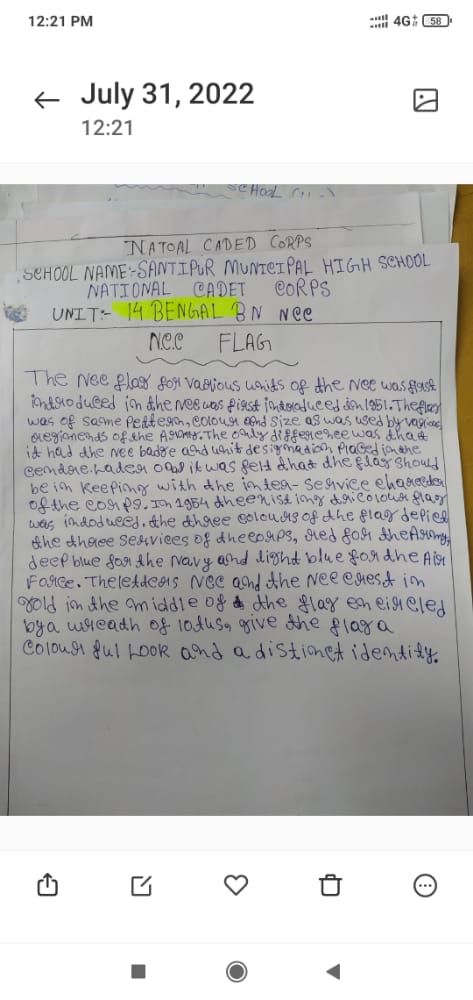 12:21 PM
4G+ 58
July 31, 2022
12:21
SCHOOL
NATOAL CADED CORPS
SCHOOL NAME:-SANTIPUR MUNICIPAL HIGH SCHOOL
NATIONAL CADET CORPS
UNIT:- 14 BENGAL BN NCC
N.C.C FLAG
The NCC flag for various units of the NCC was first
introduced in the NCC was first introduced in 1951. The flag
was of same pettern, colour and size as was used by various
regionends of the Army. The only difference was that
it had the NCC badge and unit designation placed in the
centre. Later on it was felt that the flag should
be in keeping with the inter-service character
of the corps. In 1954 the existing tricolour flag
was indoduced. the three colours of the flag depict
the three services of the corps, red for the Army,
deep blue for the Navy and light blue for the Air
Force. The letters NCC and the NCC crest in
gold in the middle of the flag encircled
by a wreath of lotus, give the flag a
colourful look and a distinct identity.